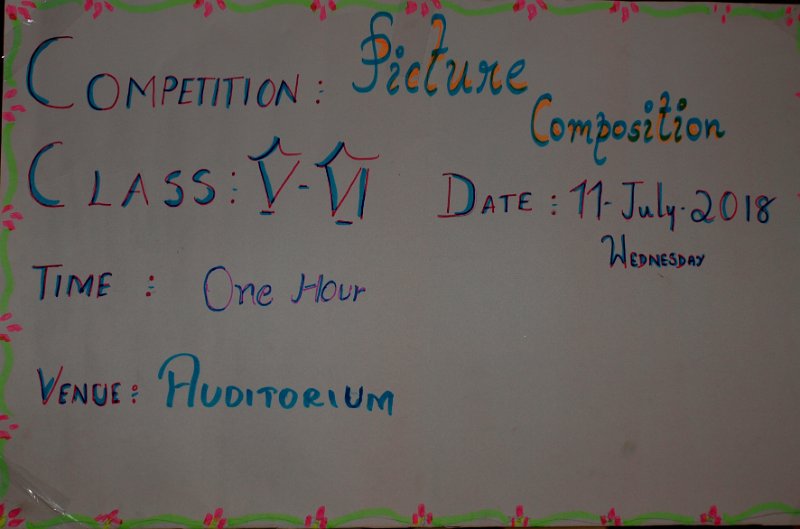 COMPETITION : Picture
Composition
CLASS : V - VI
DATE : 11-July-2018
WEDNESDAY
TIME : One Hour
VENUE : AUDITORIUM